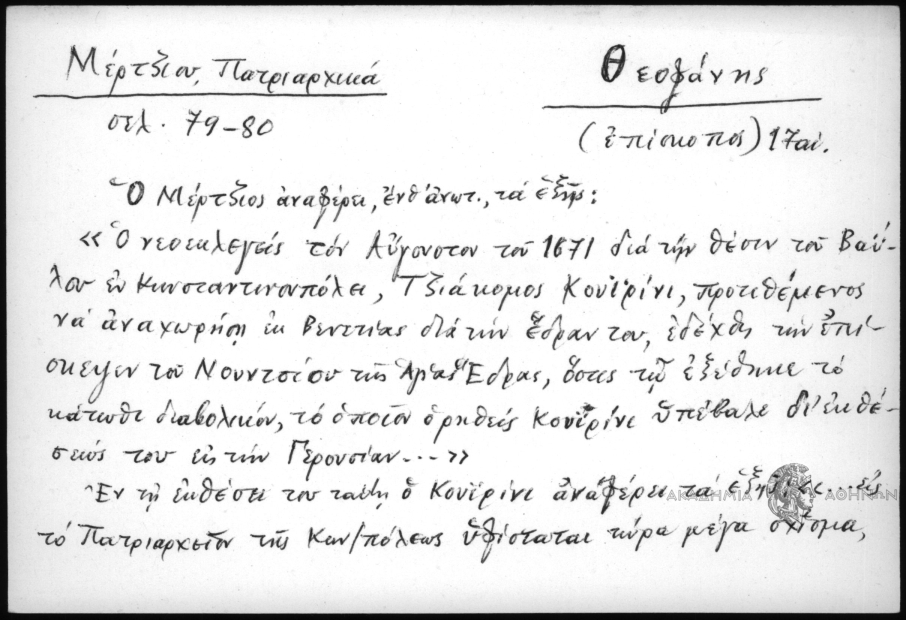 Μέρτζιου, Πατριαρχικά
σελ. 79-80
Θεοφάνης
(ἐπίσκοπος) 17 αἰ.
Ὁ Μέρτζιος ἀναφέρει, ἔνθ' ἀνωτ., τά ἑξῆς:
«Ὁ νεοεκλεγείς τόν Αὔγουστον τοῦ 1671 διά τήν θέσιν τοῦ Βαΐ-
λου ἐν Κωνσταντινουπόλει, Τζιάκομος Κουϊρίνι, προτιθέμενος
νά ἀναχωρήσῃ ἐκ Βενετίας διά τήν ἕδραν του, ἐδέχθη τήν ἐπί-
σκεψιν τοῦ Νουντσίου τῆς Ἁγίας Ἕδρας, ὅστις τῷ ἐξέθηκε τό
κάτωθι διαβολικόν, τό ὁποῖον ὁ ρηθείς Κουϊρίνι ὑπέβαλε δι' ἐκθέ-
σεώς του εἰς τήν Γερουσίαν...»
Ἐν τῇ ἐκθέσει του ταύτῃ ὁ Κουϊρίνι ἀναφέρει τά ἑξῆς ... εἰς
τό Πατριαρχεῖον τῆς Κων/πόλεως ὑφίσταται τώρα μέγα σχίσμα,
ΑΚΑΔΗΜΙΑ ΑΘΗΝΩΝ